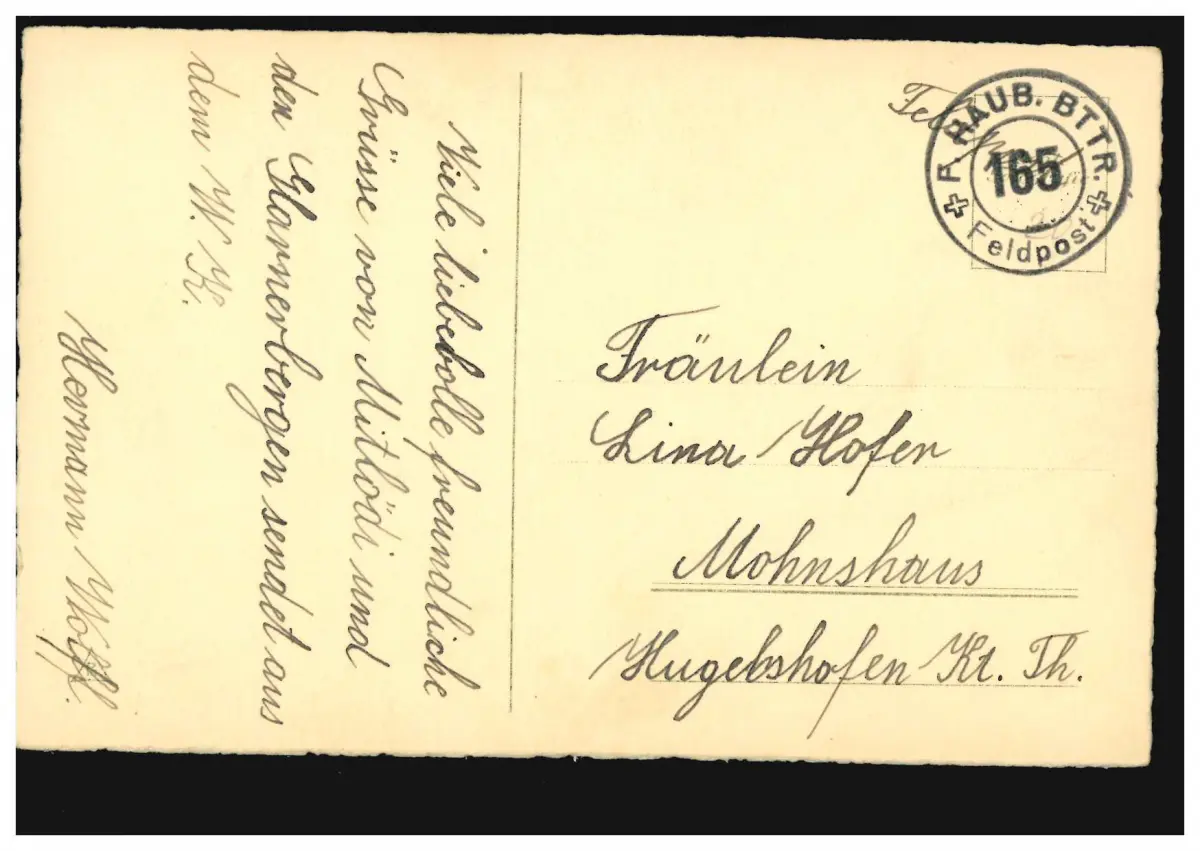 Viele liebevolle freundliche
Grüsse von Mitlödi und
den Glarnerbergen sendet aus
dem W. K.
Hermann Wolff.
F. HAUB. BTTR.
165
Feldpost
Fräulein
Lina Hofer
Mohnshaus
Hugelshofen Kt. Th.